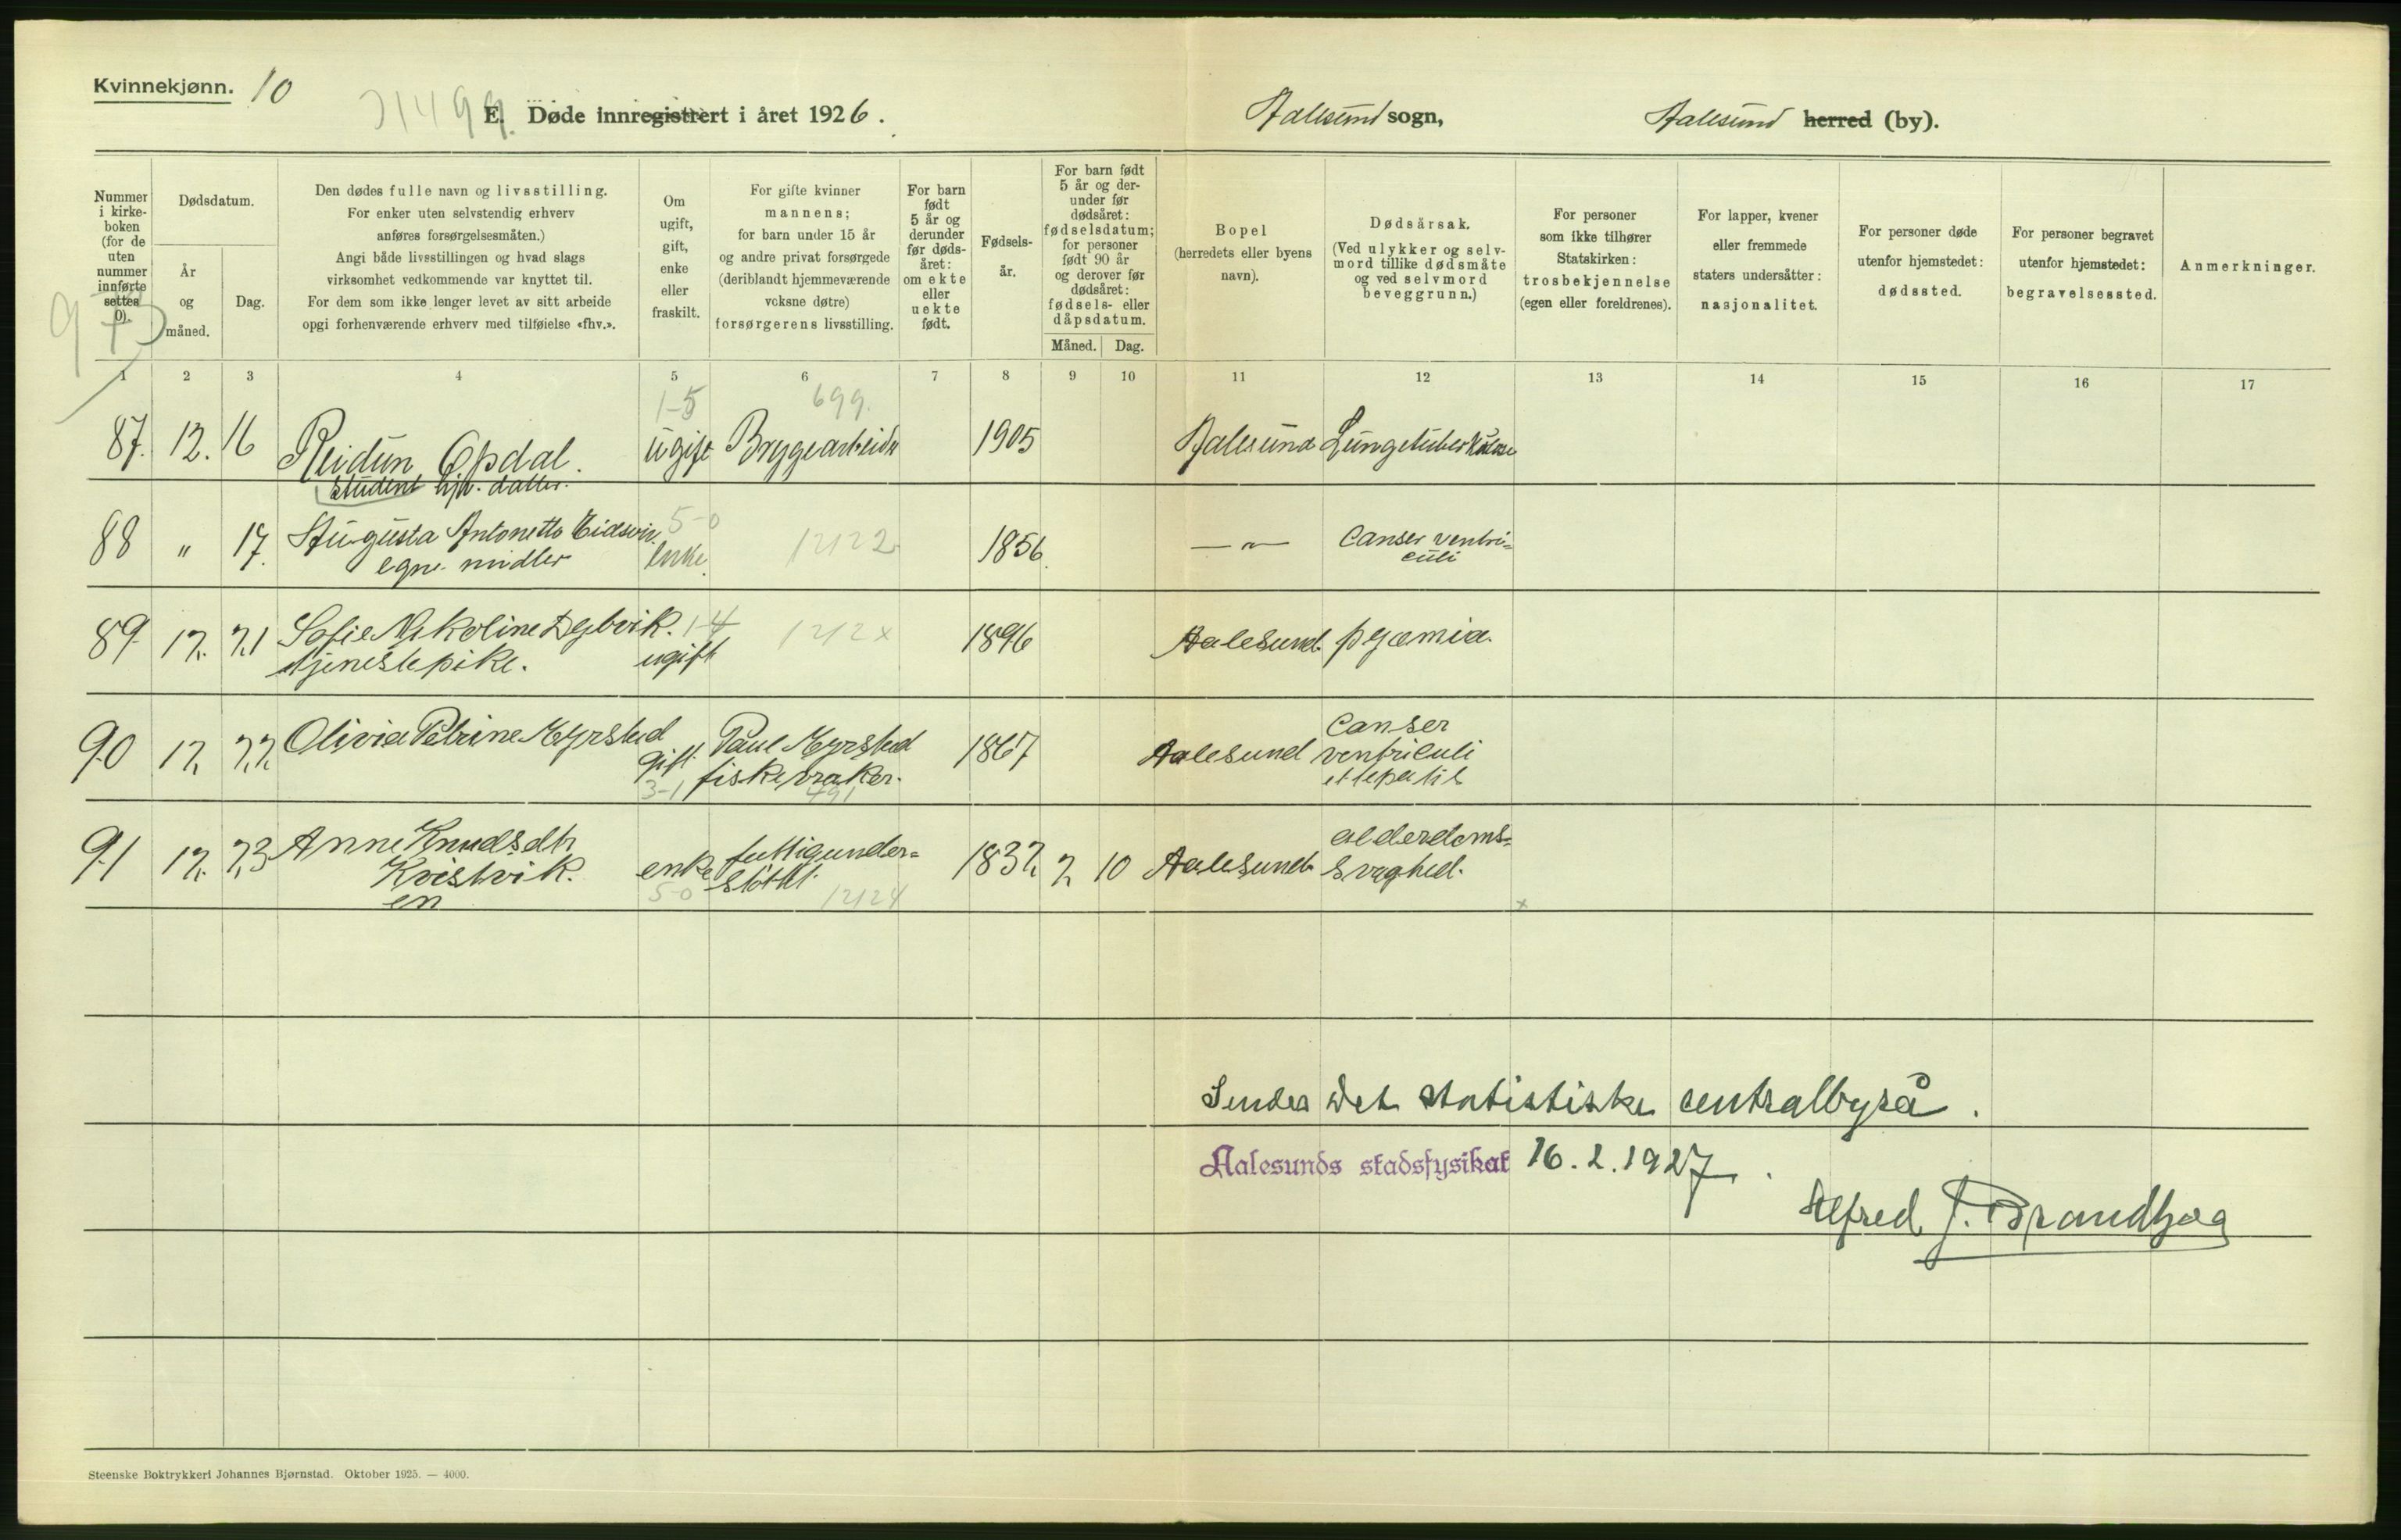 Kvinnekjønn. 10
E. Døde innregistrert i året 1926. Aalesund sogn, Aalesund herred (by).
Nummer i kirke- boken (for de uten nummer innførte settes 0).
Dødsdatum.
År og måned.
Dag.
Den dødes fulle navn og livsstilling.
For enker uten selvstendig erhverv
anføres forsørgelsesmåten.)
Angi både livsstillingen og hvad slags
virksomhet vedkommende var knyttet til.
For dem som ikke lenger levet av sitt arbeide
opgi forhenværende erhverv med tilføielse «fhv.».
Om ugift, gift, enke eller fraskilt.
For gifte kvinner
mannens;
for barn under 15 år
og andre privat forsørgede
(deriblandt hjemmeværende
voksne døtre)
forsørgerens livsstilling.
For barn født 5 år og derunder før døds- året: om ekte eller uekte født.
Fødsels- år.
For barn født
5 år og der-
under før
dødsåret:
fødselsdatum;
for personer
født 90 år
og derover før
dødsåret:
fødsels- eller
dåpsdatum.
Måned. Dag.
Bopel
(herredets eller byens
navn).
Dødsårsak.
(Ved ulykker og selv-
mord tillike dødsmåte
og ved selvmord
beveggrunn.)
For personer
som ikke tilhører
Statskirken:
trosbekjennelse
(egen eller foreldrenes).
For lapper, kvener
eller fremmede
staters undersåtter:
nasjonalitet.
For personer døde
utenfor hjemstedet:
dødssted.
For personer begravet
utenfor hjemstedet:
begravelsessted.
Anmerkninger.
1 2 3 4 5 6 7 8 9 10 11 12 13 14 15 16 17
1-5 699.
87. 12. 16 Reidun Opdal. ugift Bryggearbeider 1905 Aalesund Lungetuberkulose
student hjv. datter.
88 " 17. Augusta Antonette Eidsvik 5-0 1212 1856. —"— Canser ventri=
egne midler Enke. culi
89. 12. 21 Sofie Nikoline Dybvik. 1-4 1212 x 1896 Aalesund. pyæmia.
tjenestepike. ugift
90 12 22 Olivia Petrine Myrstad gift. Paul Myrstad 1867 Aalesund Canser
ventriculi
3-1 fiskevraker. 491
91 12. 23 Anne Knudsdtr enke fattigunder= 1832 2 10 Aalesund alderdoms=
Kvistvik. støttet. svaghed.
en 5-0 12124
Sendes det statistiske centralbyrå.
Aalesunds stadsfysikat 16.2.1927.
Alfred J. Brandhag
Steenske Boktrykkeri Johannes Bjørnstad. Oktober 1925. — 4000.